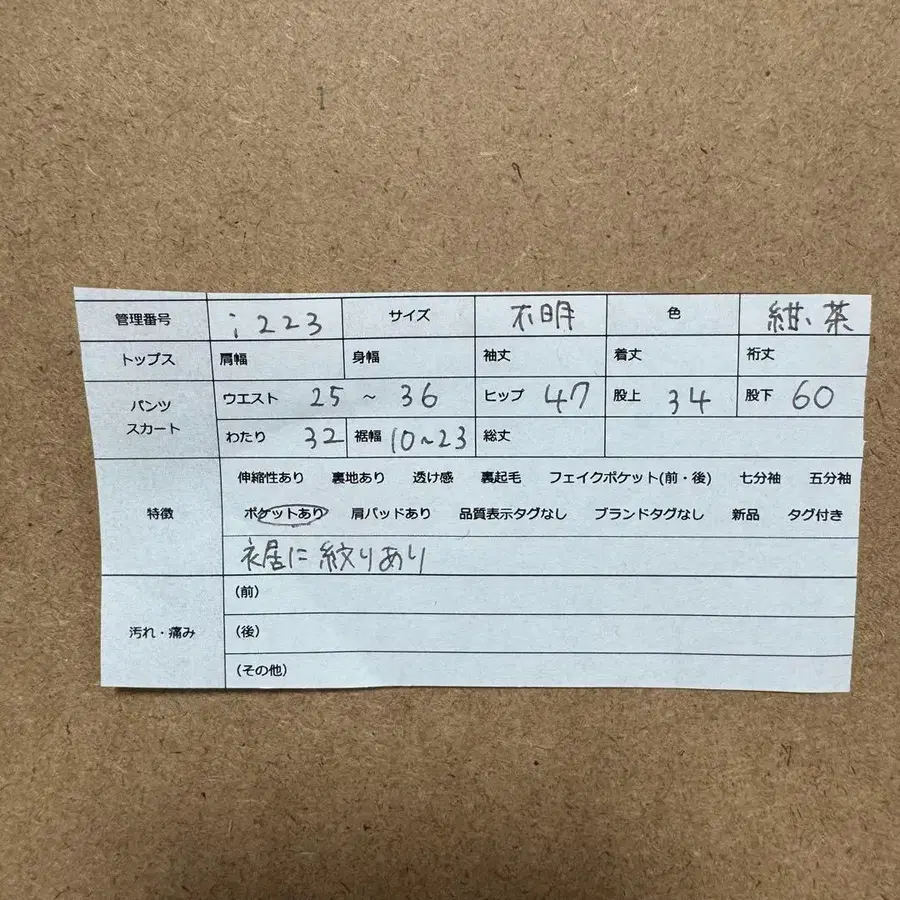 管理番号 i223 サイズ 不明 色 紺、茶
トップス 肩幅 身幅 袖丈 着丈 裄丈
パンツ スカート ウエスト 25 ~ 36 ヒップ 47 股上 34 股下 60
わたり 32 裾幅 10~23 総丈
特徴 伸縮性あり 裏地あり 透け感 裏起毛 フェイクポケット(前・後) 七分袖 五分袖
ポケットあり 肩パッドあり 品質表示タグなし ブランドタグなし 新品 タグ付き
裾に絞りあり
汚れ・痛み (前)
(後)
(その他)